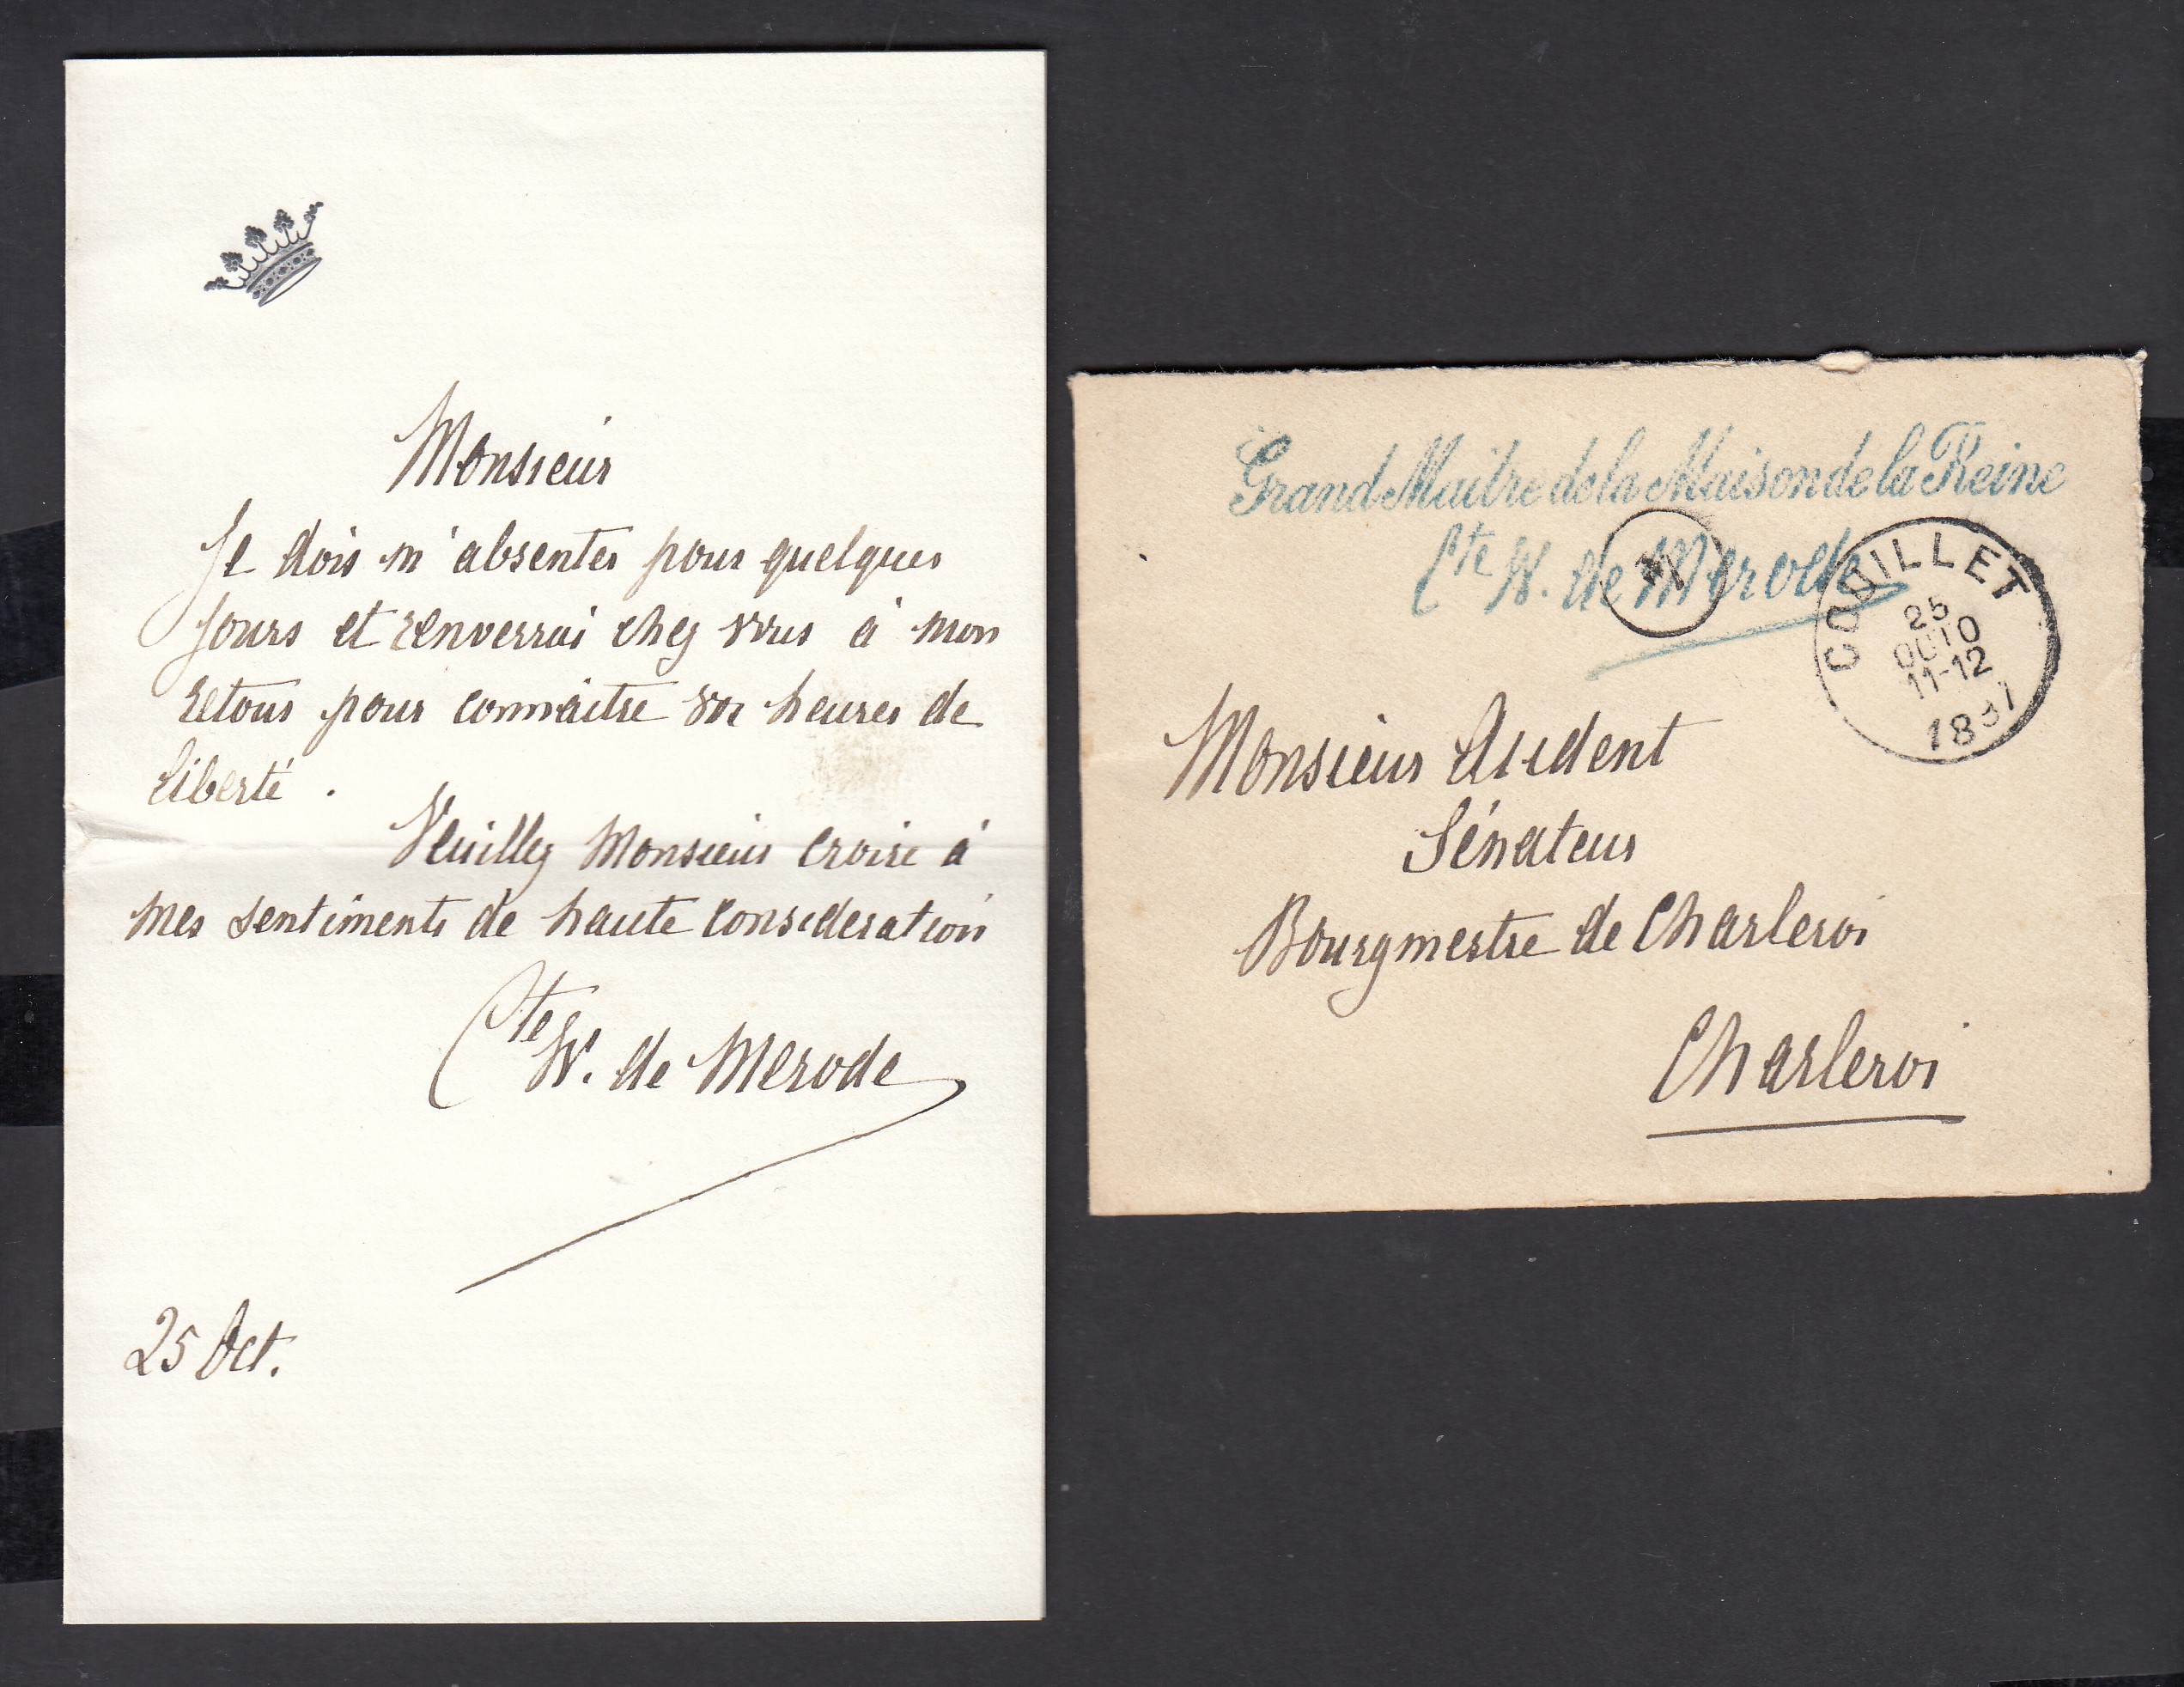 Monsieur
Je dois m'absenter pour quelques
jours et renverrai chez vous à mon
retour pour connaitre vos heures de
liberté.
Veuillez Monsieur croire à
mes sentiments de haute consideration
Cte W. de Merode
25 Oct.
Grand Maitre de la Maison de la Reine
Cte W. de Merode
COUILLET
25
OCTO
11-12
Monsieur Audent
Sénateur
Bourgmestre de Charleroi
Charleroi